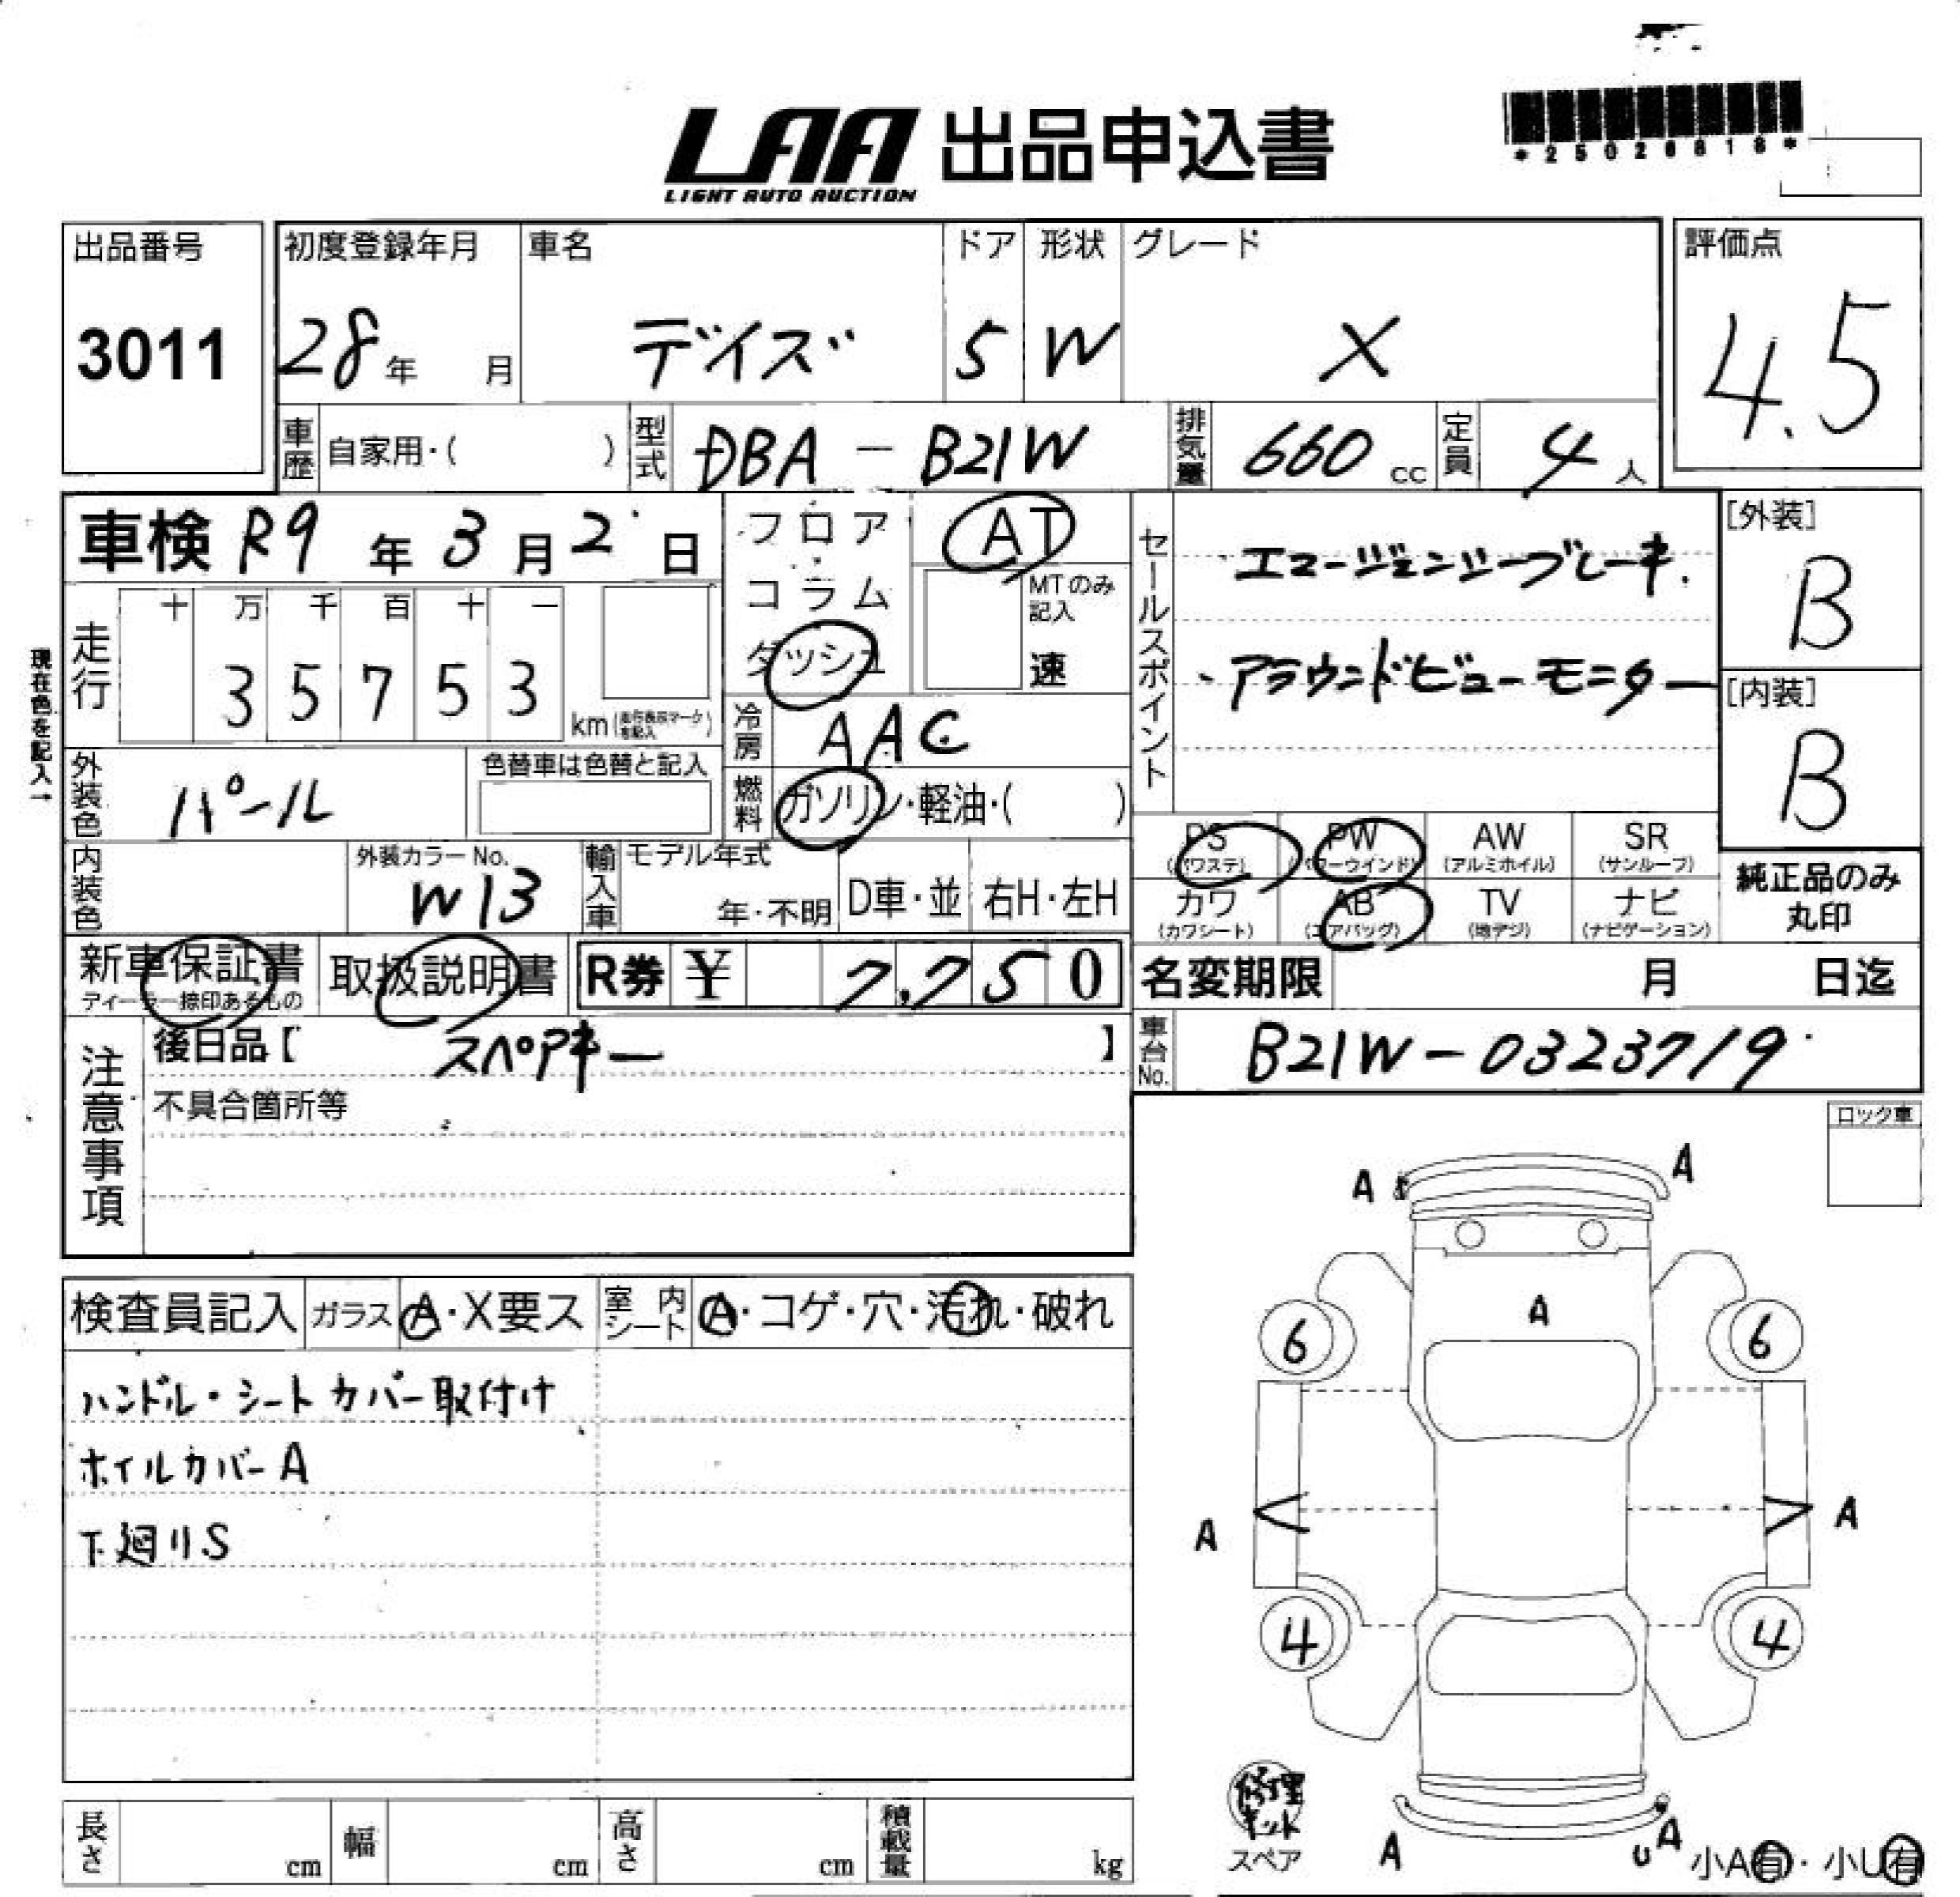 LAA 出品申込書
LIGHT AUTO AUCTION
*25026818*
出品番号
3011
初度登録年月
28年 月
車名
デイズ
ドア
5
形状
W
グレード
X
評価点
4.5
車歴
自家用・( )
型式
DBA - B21W
排気量
660 cc
定員
4 人
車検 R9 年 3 月 2 日
走行
十 万 千 百 十 一
3 5 7 5 3
km(走行表示マークを記入)
現在色を記入→
フロア
コラム
ダッシュ
AT
MTのみ記入
速
冷房
AAC
燃料
ガソリン・軽油・( )
セールスポイント
・エマージェンシーブレーキ.
・アラウンドビューモニター
[外装]
B
[内装]
B
外装色
パール
色替車は色替と記入
内装色
外装カラーNo.
W13
輸入車
モデル年式
年・不明
D車・並
右H・左H
PS
(パワステ)
PW
(パワーウインド)
AW
(アルミホイル)
SR
(サンルーフ)
カワ
(カワシート)
AB
(エアバッグ)
TV
(地デジ)
ナビ
(ナビゲーション)
純正品のみ
丸印
新車保証書
ディーラー捺印あるもの
取扱説明書
R券 ¥ 7,750
名変期限 月 日迄
注意事項
後日品【 スペアキー 】
不具合箇所等
車台No.
B21W-0323719
ロック車
検査員記入
ガラス
A・X要ス
室内シート
A・コゲ・穴・汚れ・破れ
ハンドル・シートカバー取付け
ホイルカバーA
下廻りS
A
A
A
6
6
A
A
4
4
修理キット
スペア
A
U A
小A有・小U有
長さ cm
幅 cm
高さ cm
積載量 kg